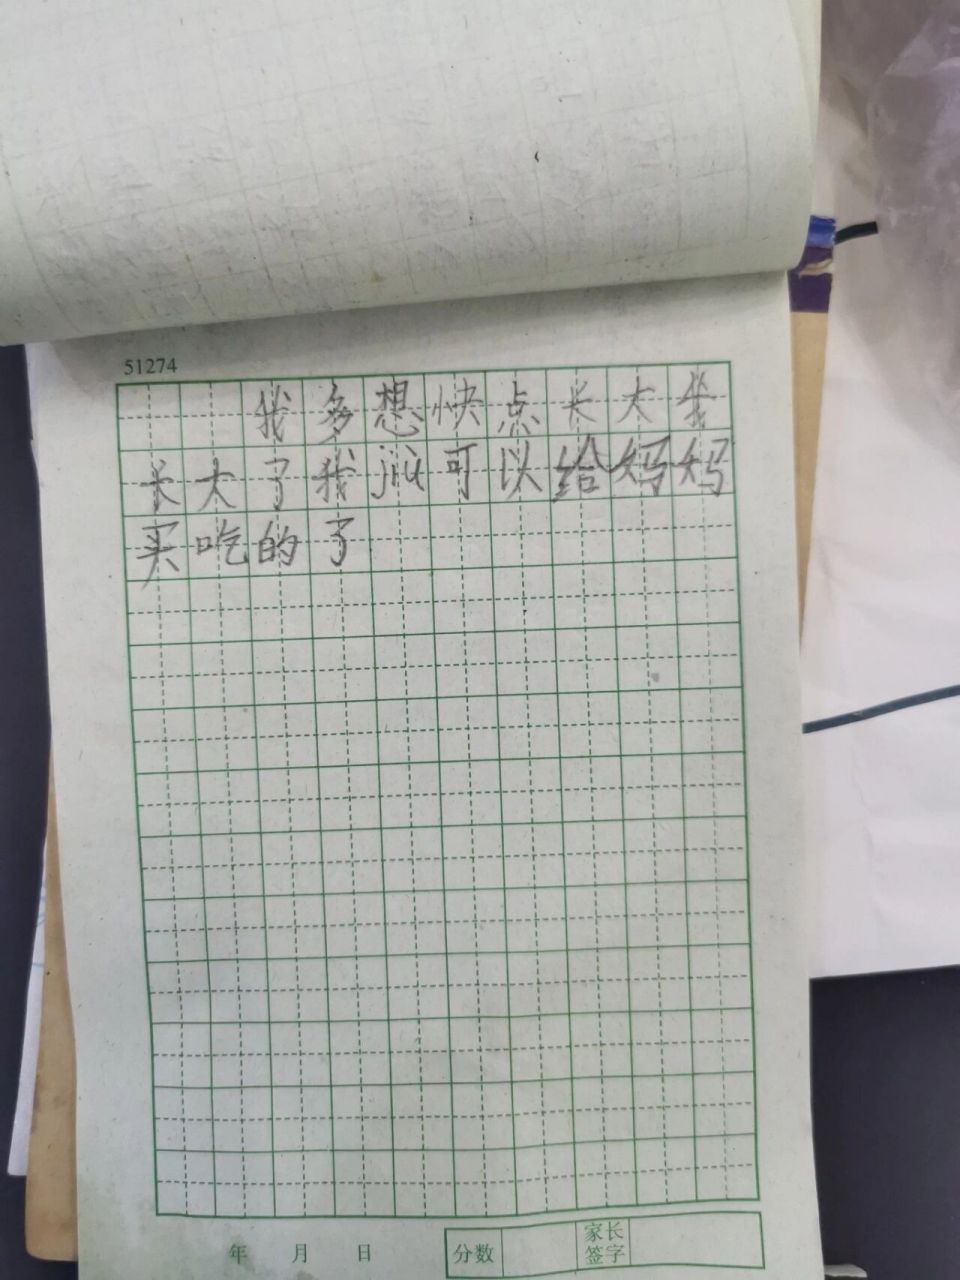 51274
我多想快点长大我
长大了我jiù可以给妈妈
买吃的了
年 月 日 分数 家长签字